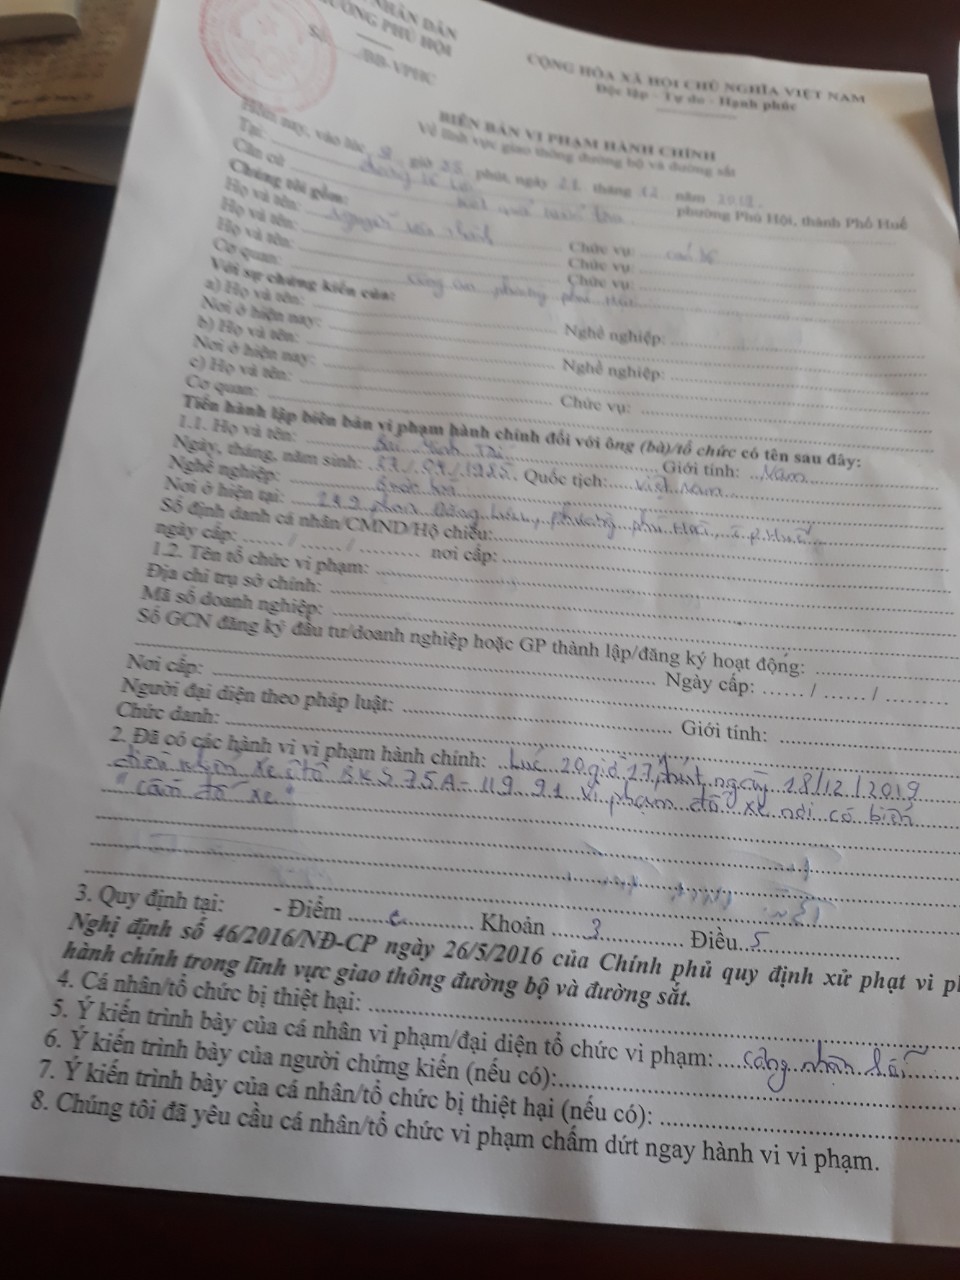 NHÂN DÂN
PHÚ HỘI
/BB-VPHC
CỘNG HÒA XÃ HỘI CHỦ NGHĨA VIỆT NAM
Độc lập - Tự do - Hạnh phúc
BIÊN BẢN VI PHẠM HÀNH CHÍNH
Về lĩnh vực giao thông đường bộ và đường sắt
Hôm nay, vào lúc giờ phút, ngày 21 tháng 12 năm
Tại: phường Phú Hội, thành Phố Huế
Căn cứ
Chúng tôi gồm:
Họ và tên: Nguyễn Chức vụ: cán bộ
Họ và tên: Chức vụ:
Họ và tên: Chức vụ:
Cơ quan: công an phường phú Hội
Với sự chứng kiến của:
a) Họ và tên: Nghề nghiệp:
Nơi ở hiện nay:
b) Họ và tên: Nghề nghiệp:
Nơi ở hiện nay:
c) Họ và tên: Chức vụ:
Cơ quan:
Tiến hành lập biên bản vi phạm hành chính đối với ông (bà)/tổ chức có tên sau đây:
1.1. Họ và tên: Giới tính: Nam
Ngày, tháng, năm sinh: Quốc tịch: Việt Nam
Nghề nghiệp:
Nơi ở hiện tại: phường phú Hội, T.P Huế
Số định danh cá nhân/CMND/Hộ chiếu:
ngày cấp: ...... / ...... / ......... nơi cấp:
1.2. Tên tổ chức vi phạm:
Địa chỉ trụ sở chính:
Mã số doanh nghiệp:
Số GCN đăng ký đầu tư/doanh nghiệp hoặc GP thành lập/đăng ký hoạt động:
Ngày cấp: ...... / ...... / .........
Nơi cấp:
Người đại diện theo pháp luật: Giới tính:
Chức danh:
2. Đã có các hành vi vi phạm hành chính: Lúc 20 giờ 27 phút ngày 18/12/2019
điều khiển xe ô tô BKS 75A-119.91 vi phạm đỗ xe nơi có biển
"cấm đỗ xe"
3. Quy định tại: - Điểm e Khoản 3 Điều 5
Nghị định số 46/2016/NĐ-CP ngày 26/5/2016 của Chính phủ quy định xử phạt vi ph
hành chính trong lĩnh vực giao thông đường bộ và đường sắt.
4. Cá nhân/tổ chức bị thiệt hại:
5. Ý kiến trình bày của cá nhân vi phạm/đại diện tổ chức vi phạm: công nhận lỗi
6. Ý kiến trình bày của người chứng kiến (nếu có):
7. Ý kiến trình bày của cá nhân/tổ chức bị thiệt hại (nếu có):
8. Chúng tôi đã yêu cầu cá nhân/tổ chức vi phạm chấm dứt ngay hành vi vi phạm.